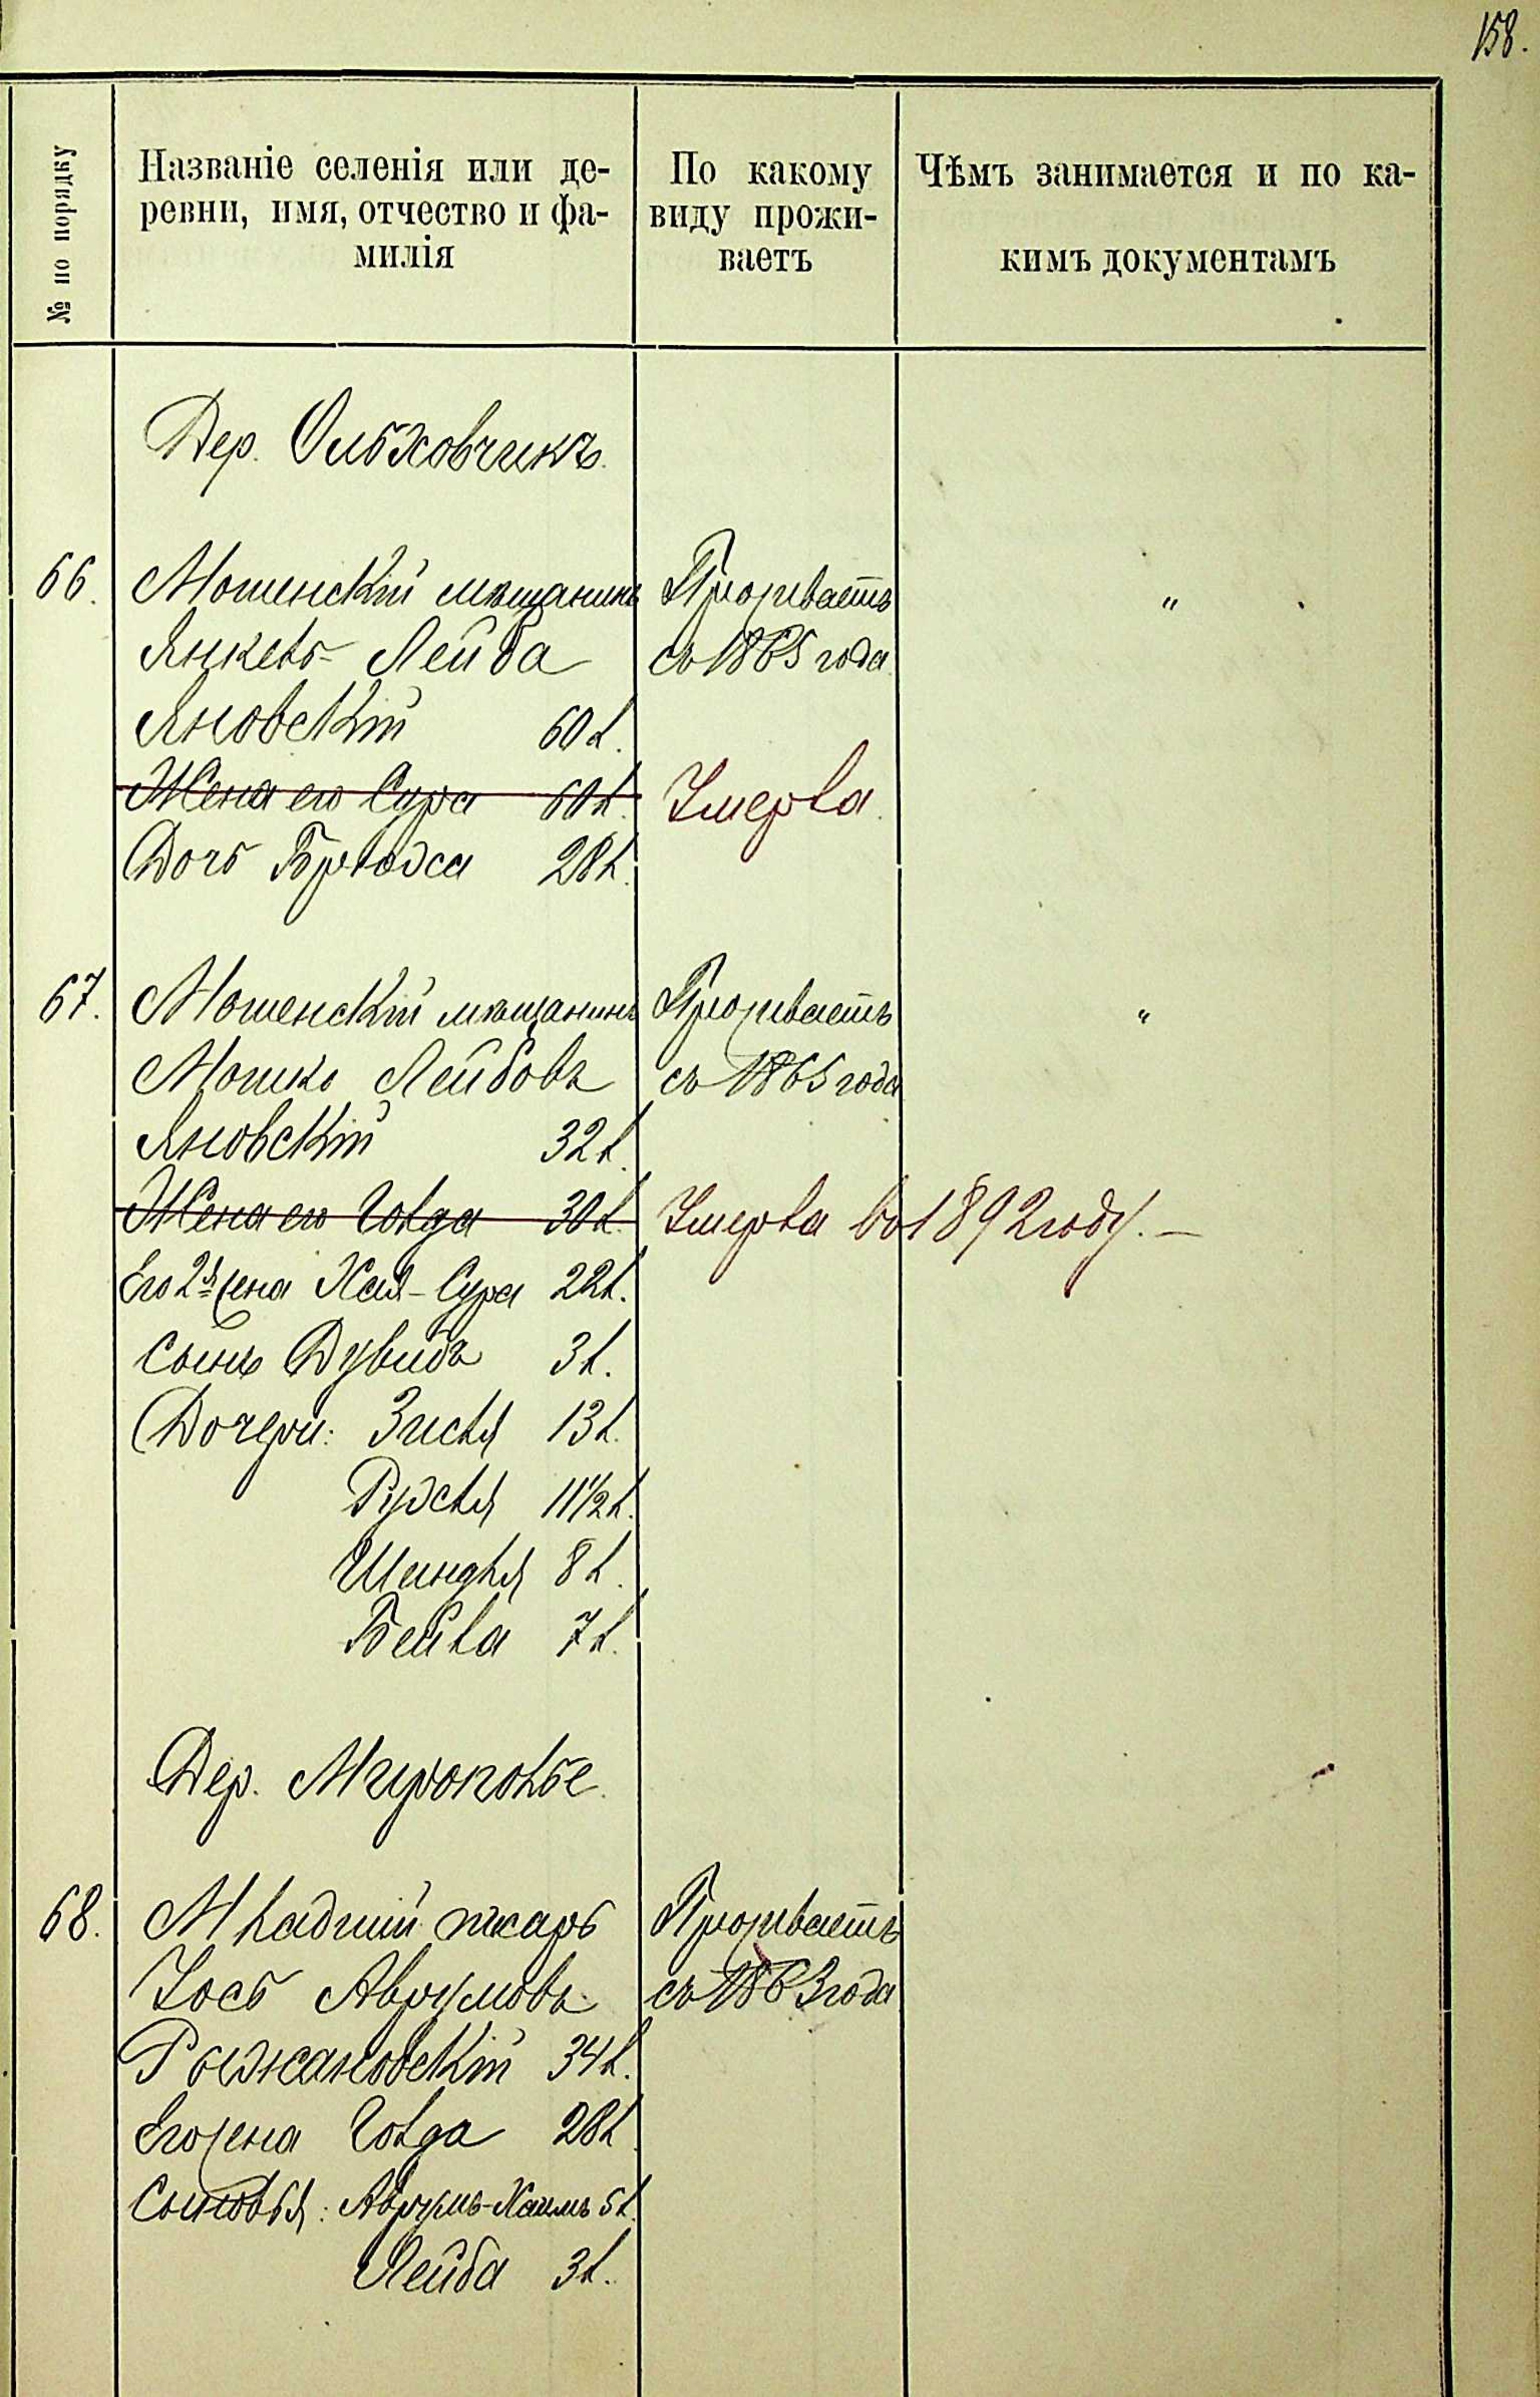 158.
№ по порядку
Названіе селенія или де-
ревни, имя, отчество и фа-
милія
По какому
виду прожи-
ваетъ
Чѣмъ занимается и по ка-
кимъ документамъ
Дер. Ольховчикъ.
66. Мошенскій мѣщанинъ Проживаетъ "
Янкель-Лейба съ 1865 года
Яновскій 60 л.
Жена его Сура 60 л. Умерла.
Дочь Брюха 28 л.
67. Мошенскій мѣщанинъ Проживаетъ "
Мошко Лейбовъ съ 1865 года
Яновскій 32 л.
Жена его Голда 30 л. Умерла въ 1892 году. —
Его 2я жена Хая-Сура 22 л.
Сынъ Дувидъ 3 л.
Дочери: Зисля 13 л.
Рухля 11 1/2 л.
Шиндля 8 л.
Бейла 7 л.
Дер. Мирополье.
68. Младшій писарь Проживаетъ
Іось Аврумовъ съ 1863 года
Рыжановскій 34 л.
Его жена Голда 28 л.
Сыновья: Аврумъ-Хаимъ 5 л.
Лейба 3 л.